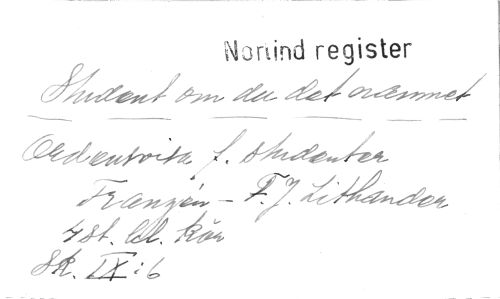 Norlind register
Student om du det ämnet
Ordensvisa f. studenter
Franzén - F. J. Lithander
4 st. bl. kör
Sk. IX:6